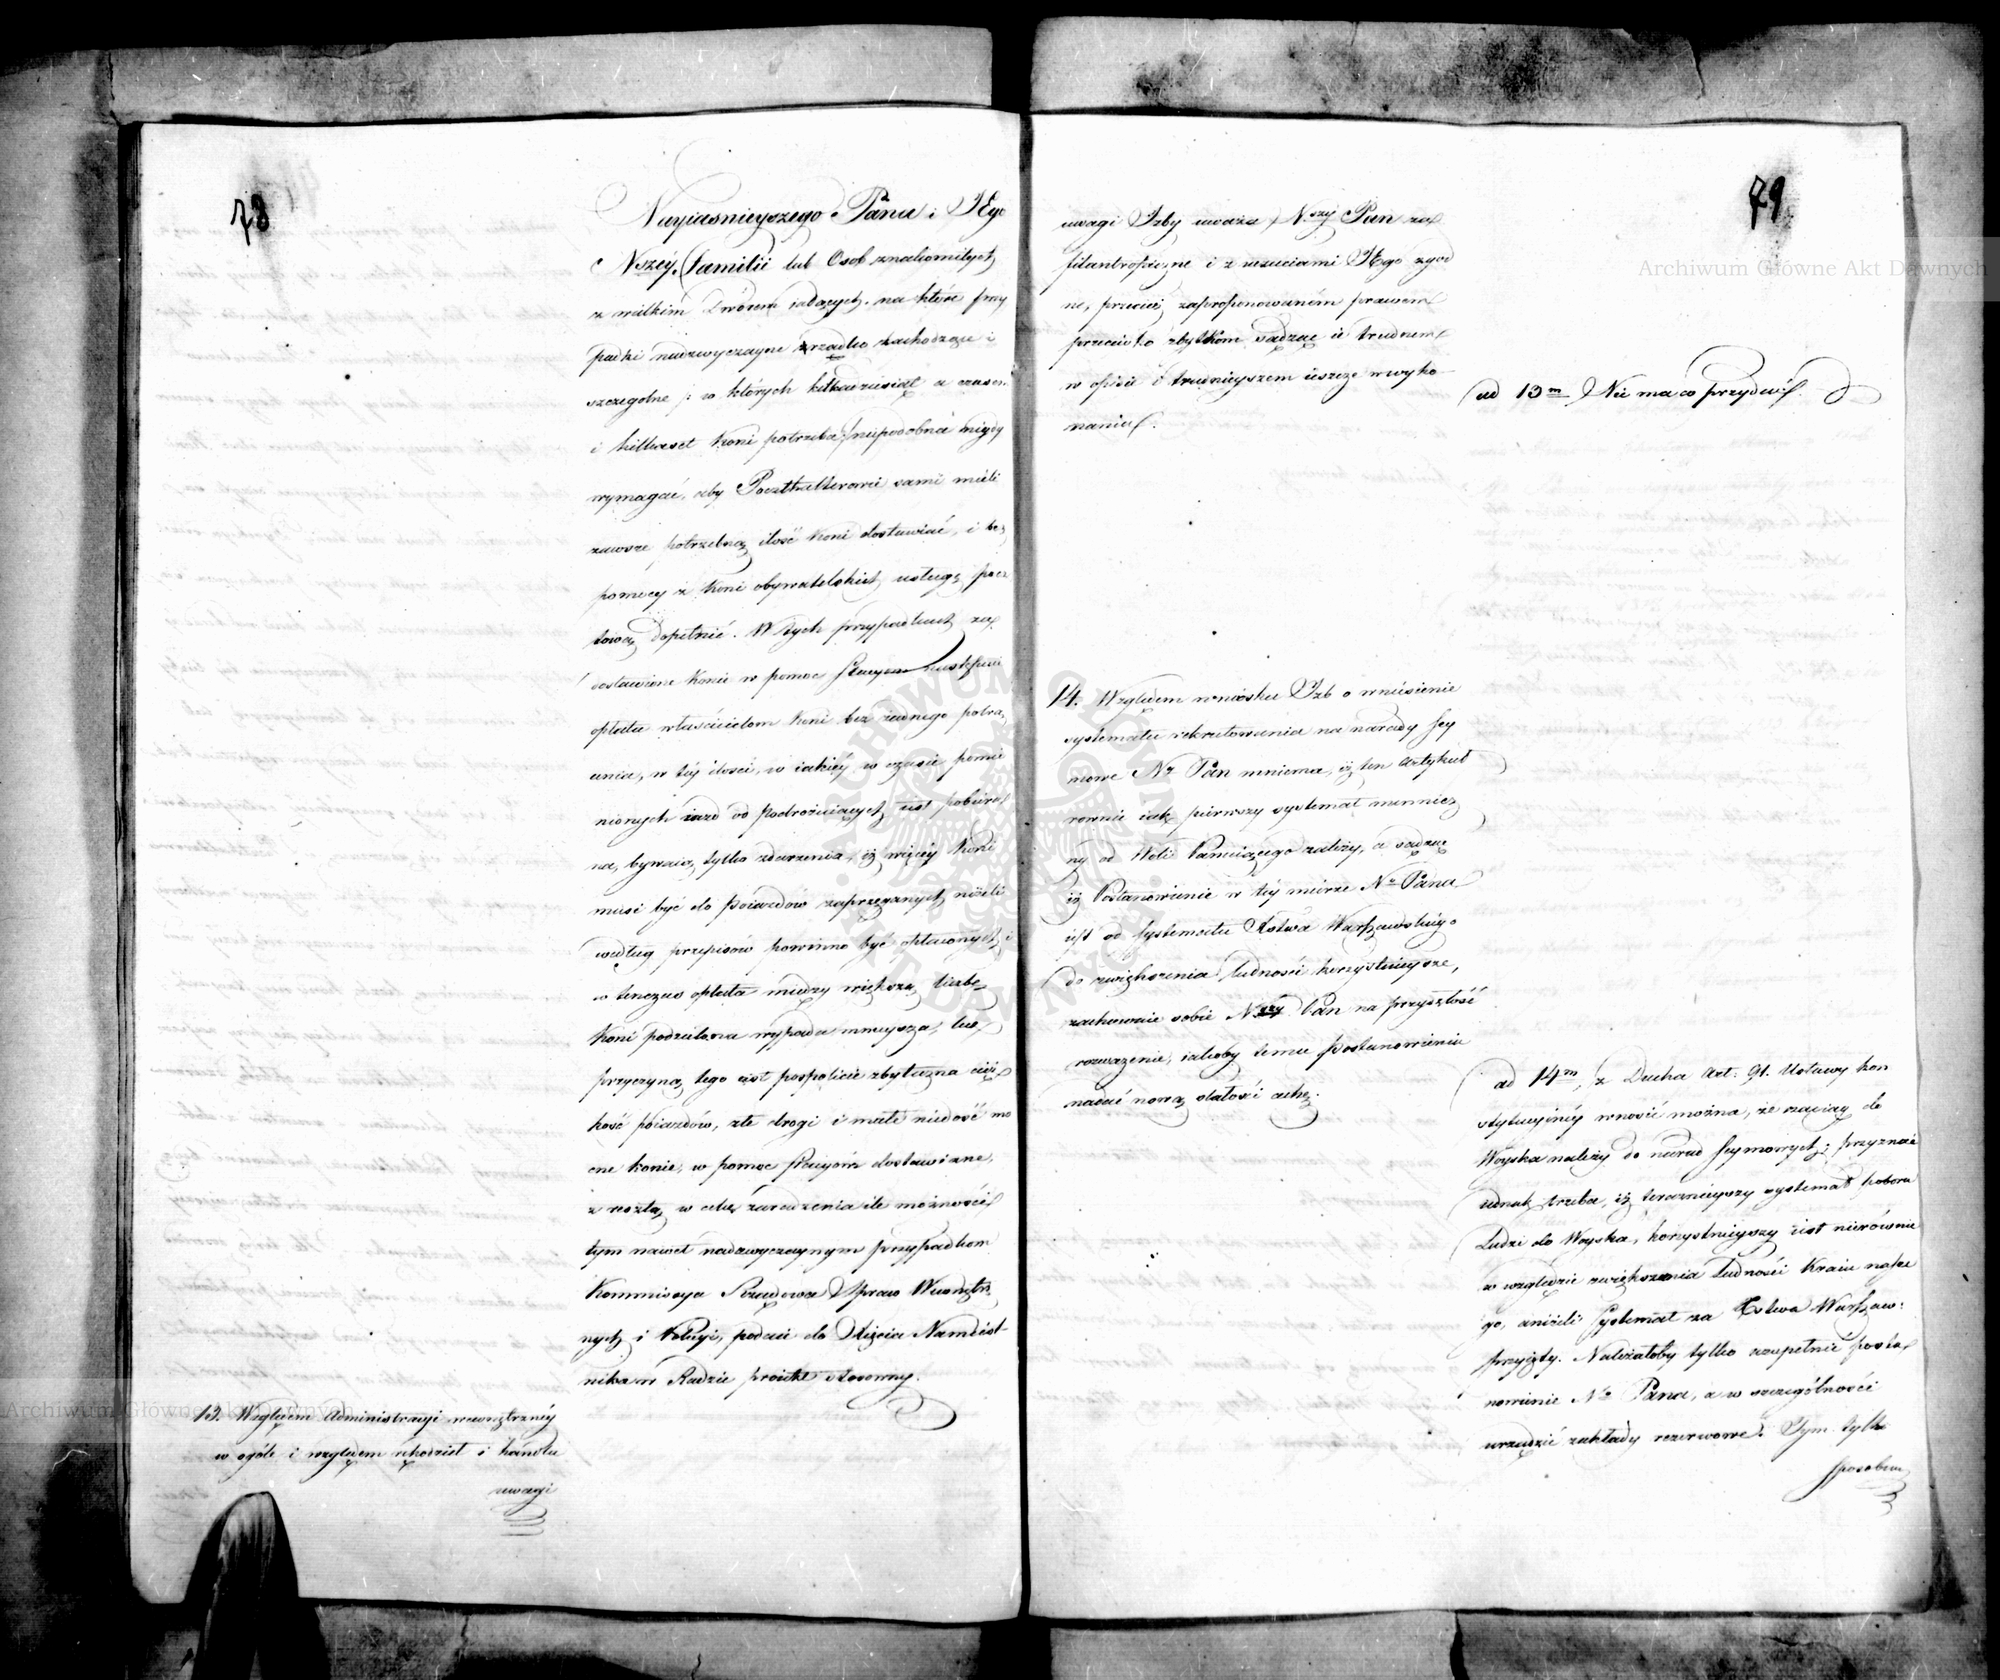 78
Nayiasnieyszego Pana i JEgo
Nszéy Familii lub Osob znakomitych
z wielkim Dworem iadących. na które przy
padki nadzwyczayne zrzadka zachodzące i
szczegolne /: w których kilkadziesiąt a czasem
i kilkaset koni potrzeba :/ niepodobna nigdy
wymagać, aby Poczthalterowie sami mieli
zawsze potrzebną ilość koni dostawiać, i bez
pomocy z koni obywatelskich usługę pocz
towią dopełnić. W tych przypadkach za
dostawione konie w pomoc Stacyom następuie
opłata właścicielom koni bez żadnego potrą
cania, w téy ilości, w iakiéy w czasie pomie
nionych iazd od podróżuiących iest pobiera
na, bywaią tylko zdarzenia, iż więcéy koni
musi być do poiazdów zaprzęganych niżeli
według przepisów powinno być opłaconych i
w tenczas opłata między większą liczbę
koni podzielona wypada mnieysza, lecz
przyczyną tego iest pospolicie zbyteczna cięż
kość poiazdów, złe drogi i małe niedość mo
cne konie, w pomoc Stacyom dostawiane,
z resztą w celu zaradzenia ile możności
tym nawet nadzwyczaynym przypadkom
Kommissya Rządowa Spraw Wewnętrz
nych i Policyi, podaie do Xięcia Namiest-
nika w Radzie proiekt stosowny.
13. Względem Administracyi wewnętrznéy
w ogóle i względem rękodzieł i handlu
uwagi
79
uwagi Izby uważa N.szy Pan za
filantropiczne i z uczuciami JEgo zgod
ne, przeciéż zaproponowaném prawem
przeciwko zbytkom sądząc ie trudnem
w opisie i trudnieyszem ieszcze w wyko-
naniu.
ad 13m Nie ma co przydać.
14. Względem wniosku Izb o wniesienie
systematu rekrutowania na narady Sey
mowe Nr Pan mniema, iż ten artykuł
rownie iak pierwszy systemat mennicz
ny od Woli Panuiącego zależy, a sądząc
iż Postanowienie w téy mierze No Pana
iest od Systematu Xstwa Warszawskiego
do zwiększenia ludności korzystnieysze,
zachowuie sobie Nszy Pan na przyszłość
rozważenie, iakoby temu postanowieniu
nadać nową stałości cechę.
ad 14m, z Ducha Art: 91. Ustawy kon
stytucyinéy wnosić można, że zaciąg do
Woyska należy do narad Seymowych; przyznać
iednak trzeba, iż teraznieyszy systemat poboru
Ludzi do Woyska, korzystnieyszy iest nierównie
w względzie zwiększenia Ludności Kraiu nasze
go, aniżeli Systemat za Xstwa Warszaw:
przyięty. Należałoby tylko zupełnie posta
nowienie No Pana, a w szczególności
urządzić zakłady rezerwowe. Tym tylko
sposobem